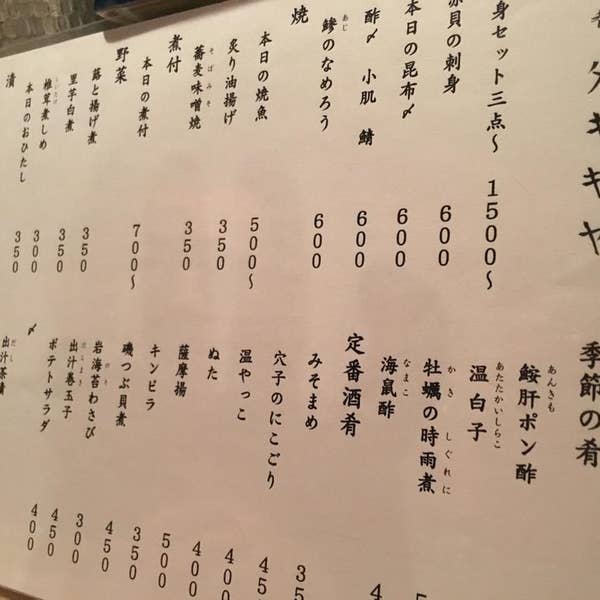 身セット三点〜 1500〜
赤貝の刺身 600
本日の昆布〆 600
酢〆 小肌 鯖 600
鯵のなめろう 600
あじ
焼
本日の焼魚 500〜
炙り油揚げ 350
蕎麦味噌焼 350
そばみそ
煮付
本日の煮付 700〜
野菜
蕗と揚げ煮 350
里芋白煮 350
椎茸煮しめ 300
本日のおひたし 350
漬
季節の肴
鮟肝ポン酢
あんきも
温白子
あたたかいしらこ
牡蠣の時雨煮
かき しぐれに
海鼠酢
なまこ
定番酒肴
みそまめ
穴子のにこごり
温やっこ 400
ぬた 400
薩摩揚 500
キンピラ 350
磯つぶ貝煮 450
岩海苔わさび 300
のり
出汁巻玉子 450
だしまき
ポテトサラダ 400
〆
出汁茶漬
だし